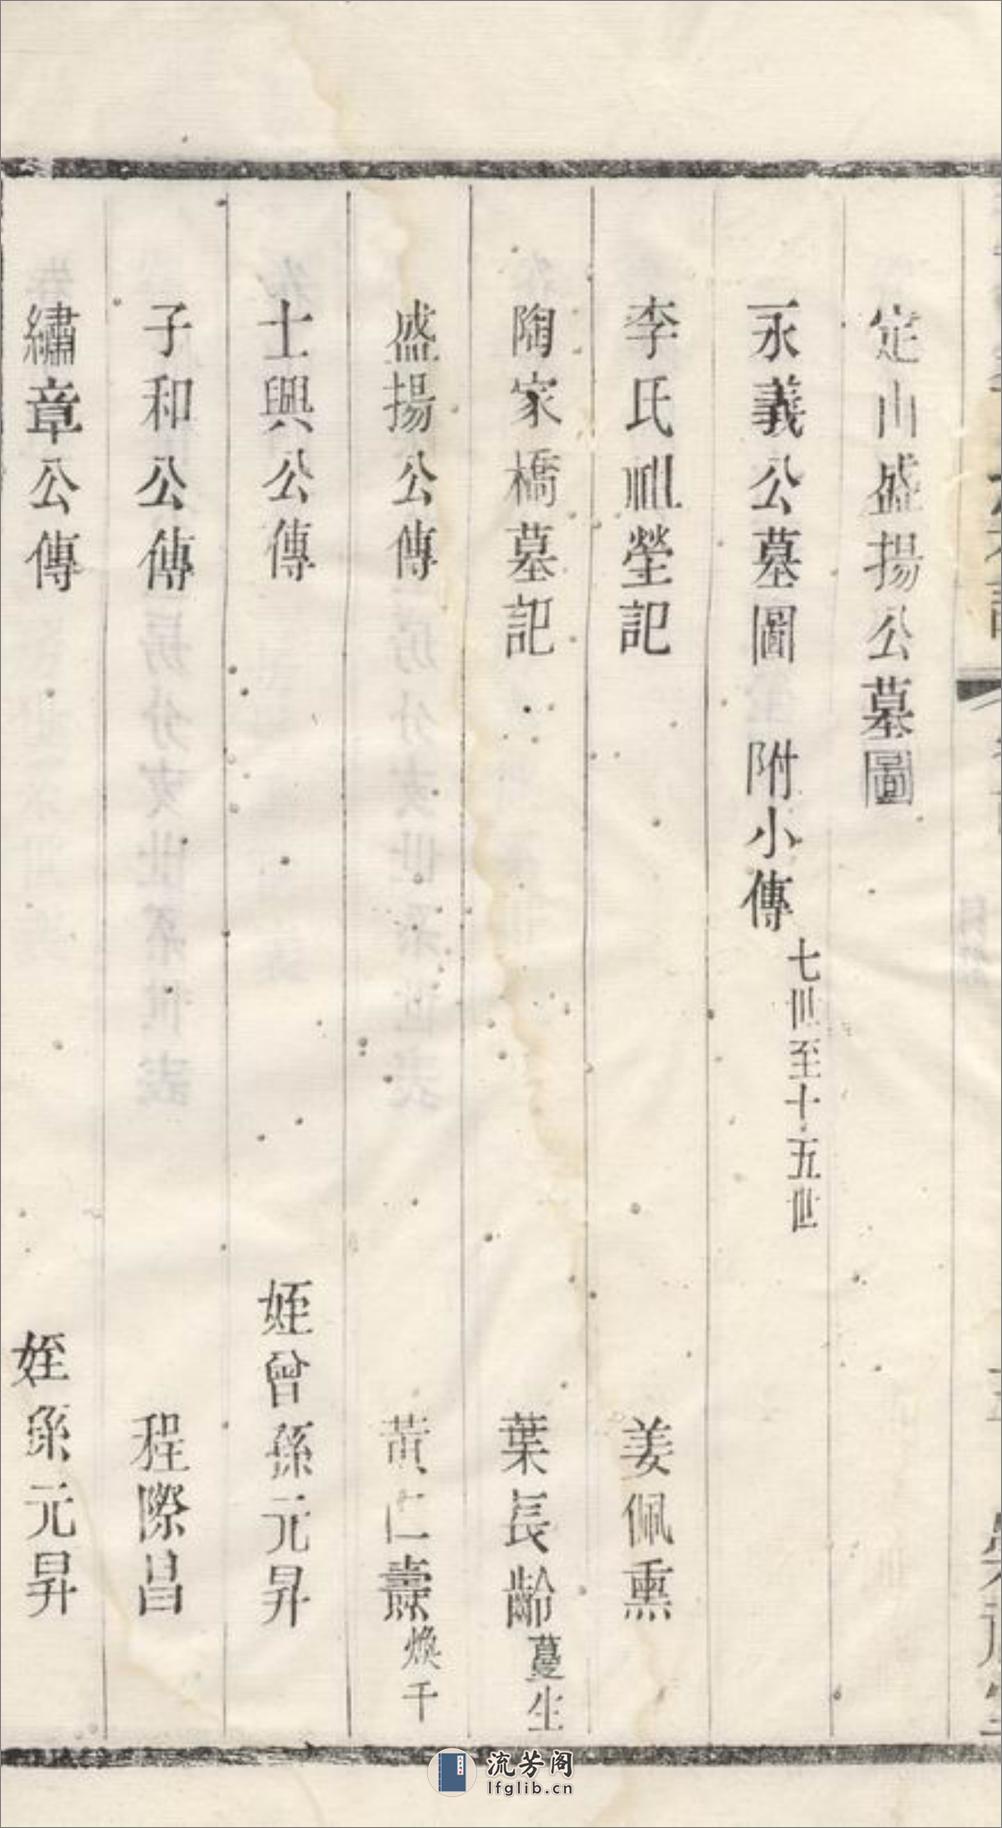 定山盛揚公墓圖
永義公墓圖 附小傳 七世至十五世
李氏祖塋記 姜佩熏
陶家橋墓記 葉長齡 蔓生
盛揚公傳 黃仁壽 煥千
士興公傳 姪曾孫元昇
子和公傳 程際昌
繡章公傳 姪孫元昇
流芳阁
lfglib.cn